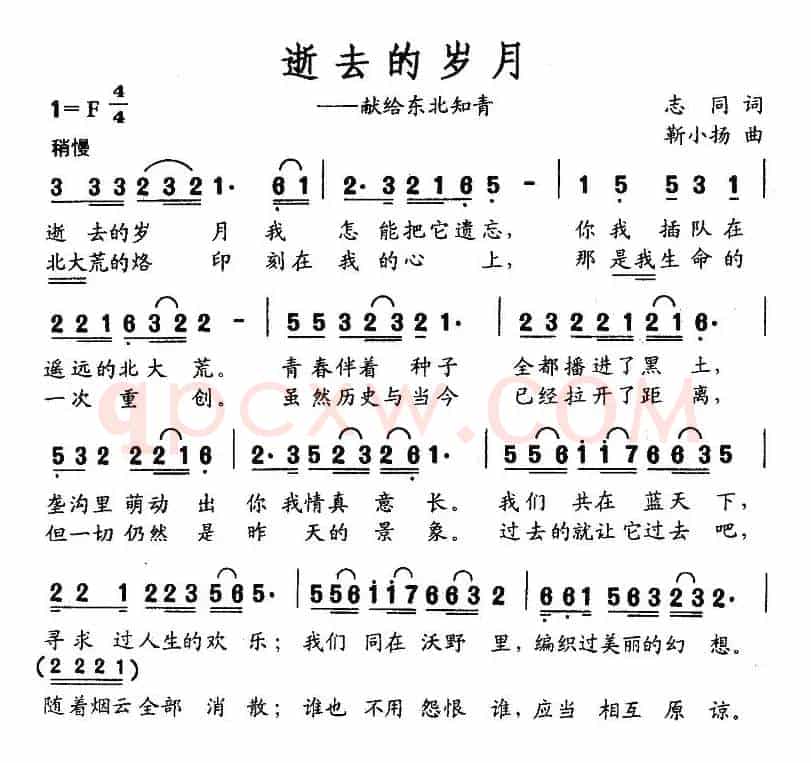 逝去的岁月
1=F 4/4 ——献给东北知青 志同词
稍慢 靳小扬 曲
3 3 3 3 2 3 2 1· 6 1 | 2· 3 2 1 6 5 - | 1 5 5 3 1 |
逝去的岁 月我 怎能把它遗忘， 你我 插队在
北大荒的烙 印 刻在 我的心 上， 那是我生命的
2 2 1 6 3 2 2 - | 5 5 3 2 3 2 1· | 2 3 2 2 1 2 1 6· |
遥远的北大 荒。 青春伴着 种子 全都播进了黑 土，
一次 重 创。 虽然历史与当今 已经拉开了距 离，
qpcxw.COM
5 3 2 2 2 1 6 | 2· 3 5 2 3 2 6 1· | 5 5 6 i i 7 6 6 3 5 |
垄沟里萌动 出 你我情真 意 长。 我们 共在 蓝天 下，
但一切仍然 是 昨 天的 景 象。 过去的就让它过去 吧，
2 2 1 2 2 3 5 6 5· | 5 5 6 i i 7 6 6 3 2 | 6 6 1 5 6 3 2 3 2· |
寻求 过人生的欢 乐； 我们 同在 沃野 里， 编织过美丽的幻 想。
(2 2 2 1)
随着烟云全部 消 散； 谁也 不用 怨恨 谁， 应当 相互 原 谅。